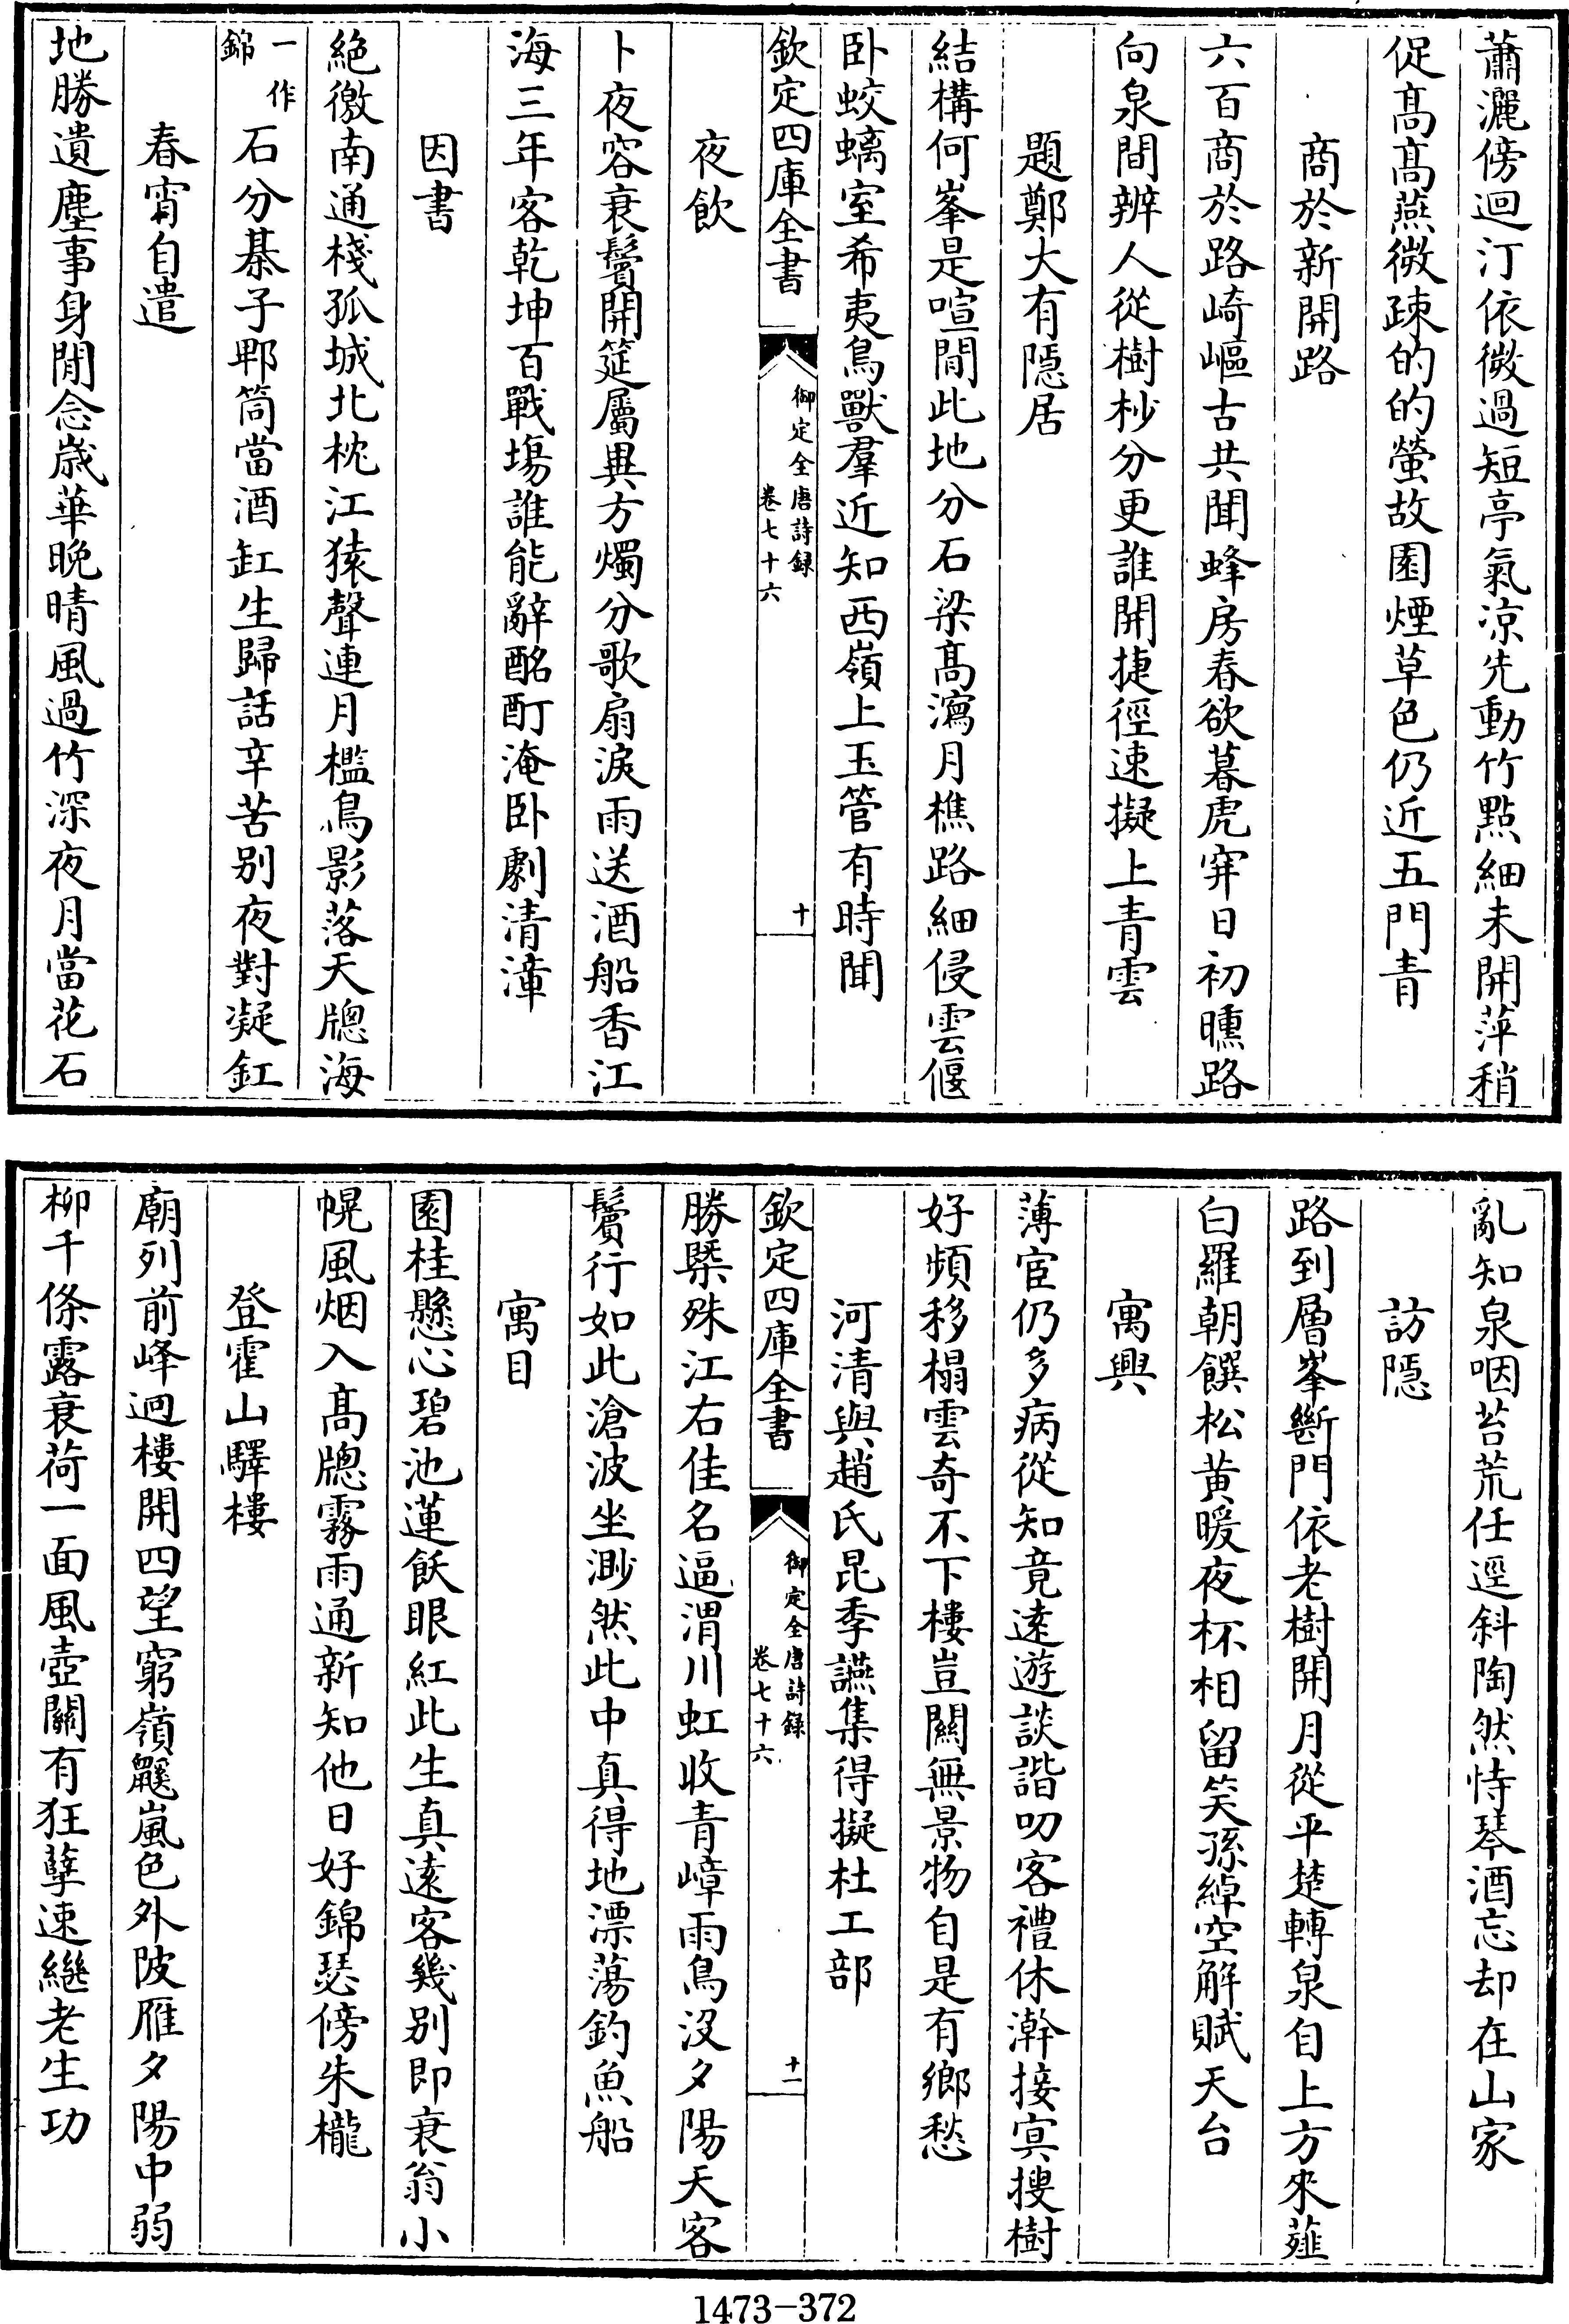 蕭灑傍迴汀依微過短亭氣涼先動竹點細未開萍稍
促髙髙燕微疎的的螢故園煙草色仍近五門青
商於新開路
六百商於路崎嶇古共聞蜂房春欲暮虎穽日初曛路
向泉間辨人從樹杪分更誰開捷徑速擬上青雲
題鄭大有隱居
結構何峯是喧閒此地分石梁髙瀉月樵路細侵雲偃
卧蛟螭室希夷鳥獸羣近知西嶺上玉管有時聞
欽定四庫全書
御定全唐詩録
卷七十六
十
夜飲
卜夜容衰鬢開筵屬異方燭分歌扇淚雨送酒船香江
海三年客乾坤百戰場誰能辭酩酊淹卧劇清漳
因書
絶徼南通棧孤城北枕江猿聲連月檻鳥影落天牕海
一作
錦
石分棊子郫筒當酒缸生歸話辛苦别夜對凝釭
春宵自遣
地勝遺塵事身閒念歳華晚晴風過竹深夜月當花石
亂知泉咽苔荒任逕斜陶然恃琴酒忘却在山家
訪隱
路到層峯斷門依老樹開月從平楚轉泉自上方來薤
白羅朝饌松黄暖夜杯相留笑孫綽空解賦天台
寓興
薄宦仍多病從知竟逺遊談諧叨客禮休澣接㝠搜樹
好頻移榻雲奇不下樓豈關無景物自是有鄉愁
河清與趙氏昆季讌集得擬杜工部
欽定四庫全書
御定全唐詩録
卷七十六
十一
勝槩殊江右佳名逼渭川虹收青嶂雨鳥没夕陽天客
鬢行如此滄波坐渺然此中真得地漂蕩釣魚船
寓目
園桂懸心碧池蓮飫眼紅此生真逺客幾别即衰翁小
幌風烟入髙牕霧雨通新知他日好錦瑟傍朱櫳
登霍山驛樓
廟列前峰逈樓開四望窮嶺鼷嵐色外陂雁夕陽中弱
柳千條露衰荷一面風壺關有狂孽速繼老生功
1473-372